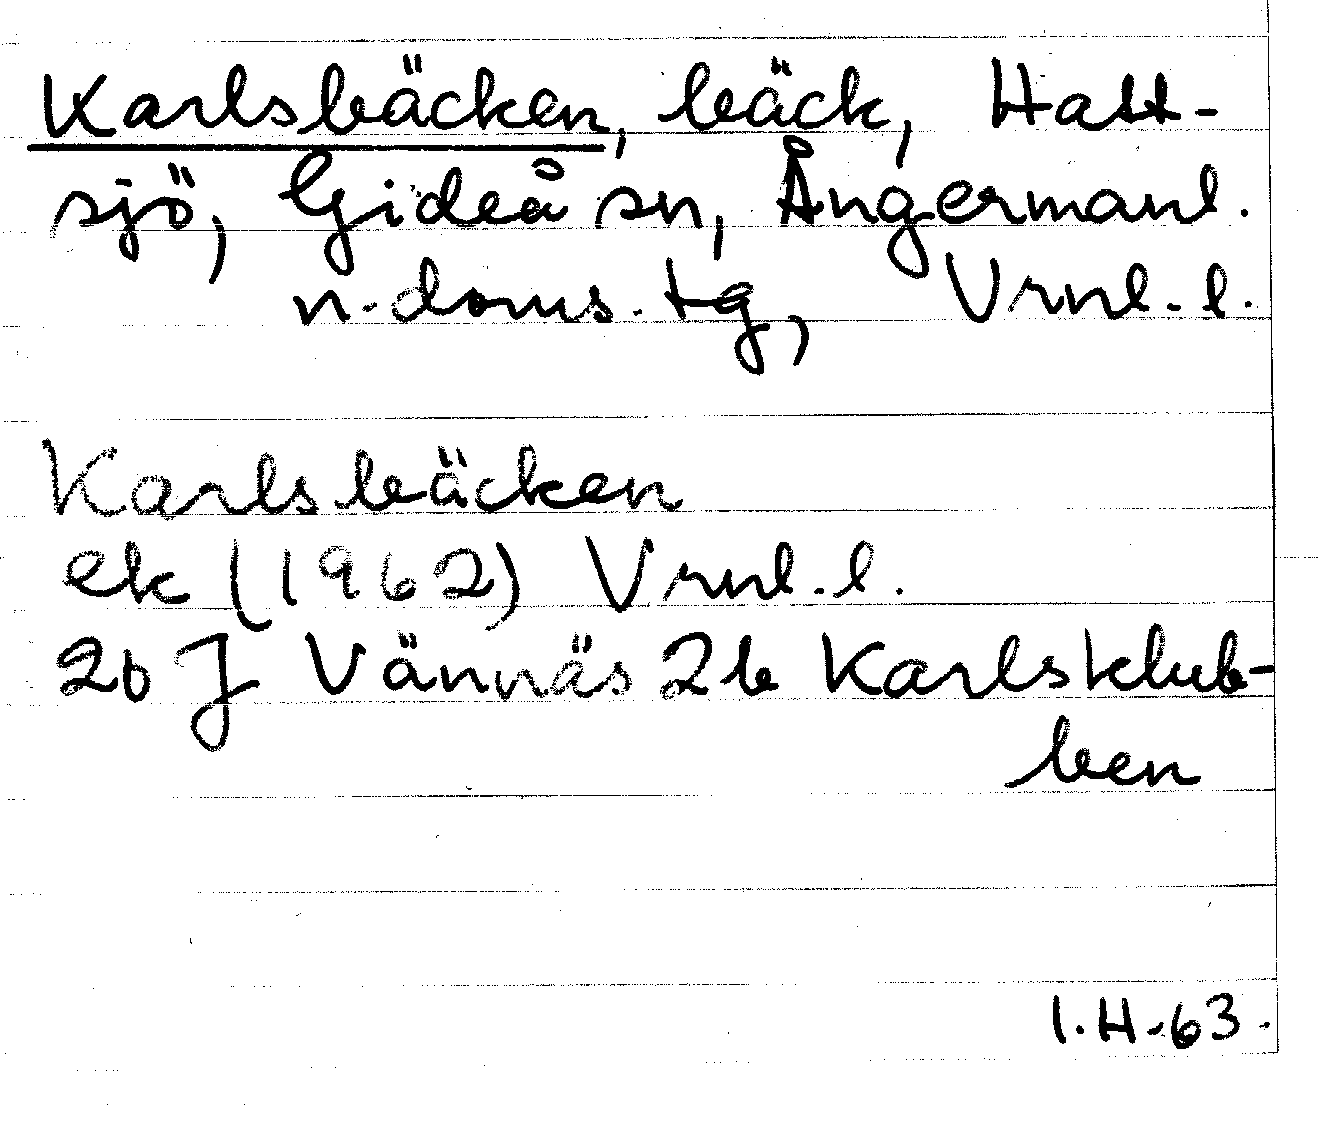 Karlsbäcken, bäck, Hatt-
sjö, Gideå sn, Ångermanl.
n. doms. tg, Vrnl. l.
Karlsbäcken
ek (1962) Vrnl. l.
20 J Vännäs 2b Karlsklub-
ben
I.H.-63.